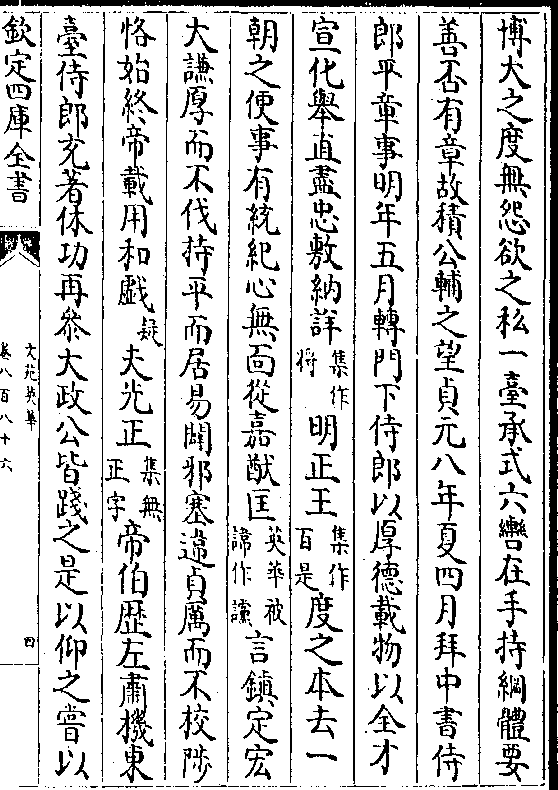 博大之度無怨欲之私一臺承式六轡在手持綱體要
善否有章故積公輔之望貞元八年夏四月拜中書侍
郎平章事明年五月轉門下侍郎以厚德載物以全才
宣化舉直盡忠敷納詳集作將明正王集作百是度之本去一
朝之便事有統紀心無面從嘉猷匡英華被諱作讜言鎮定宏
大謙厚而不伐持平而居易闢邪塞違貞厲而不校陟
恪始終帝載用和戲疑夫光正集無正字帝伯歴左肅機東
臺侍郎克著休功再叅大政公皆踐之是以仰之嘗以
欽定四庫全書
文苑英華
卷八百八十六
四